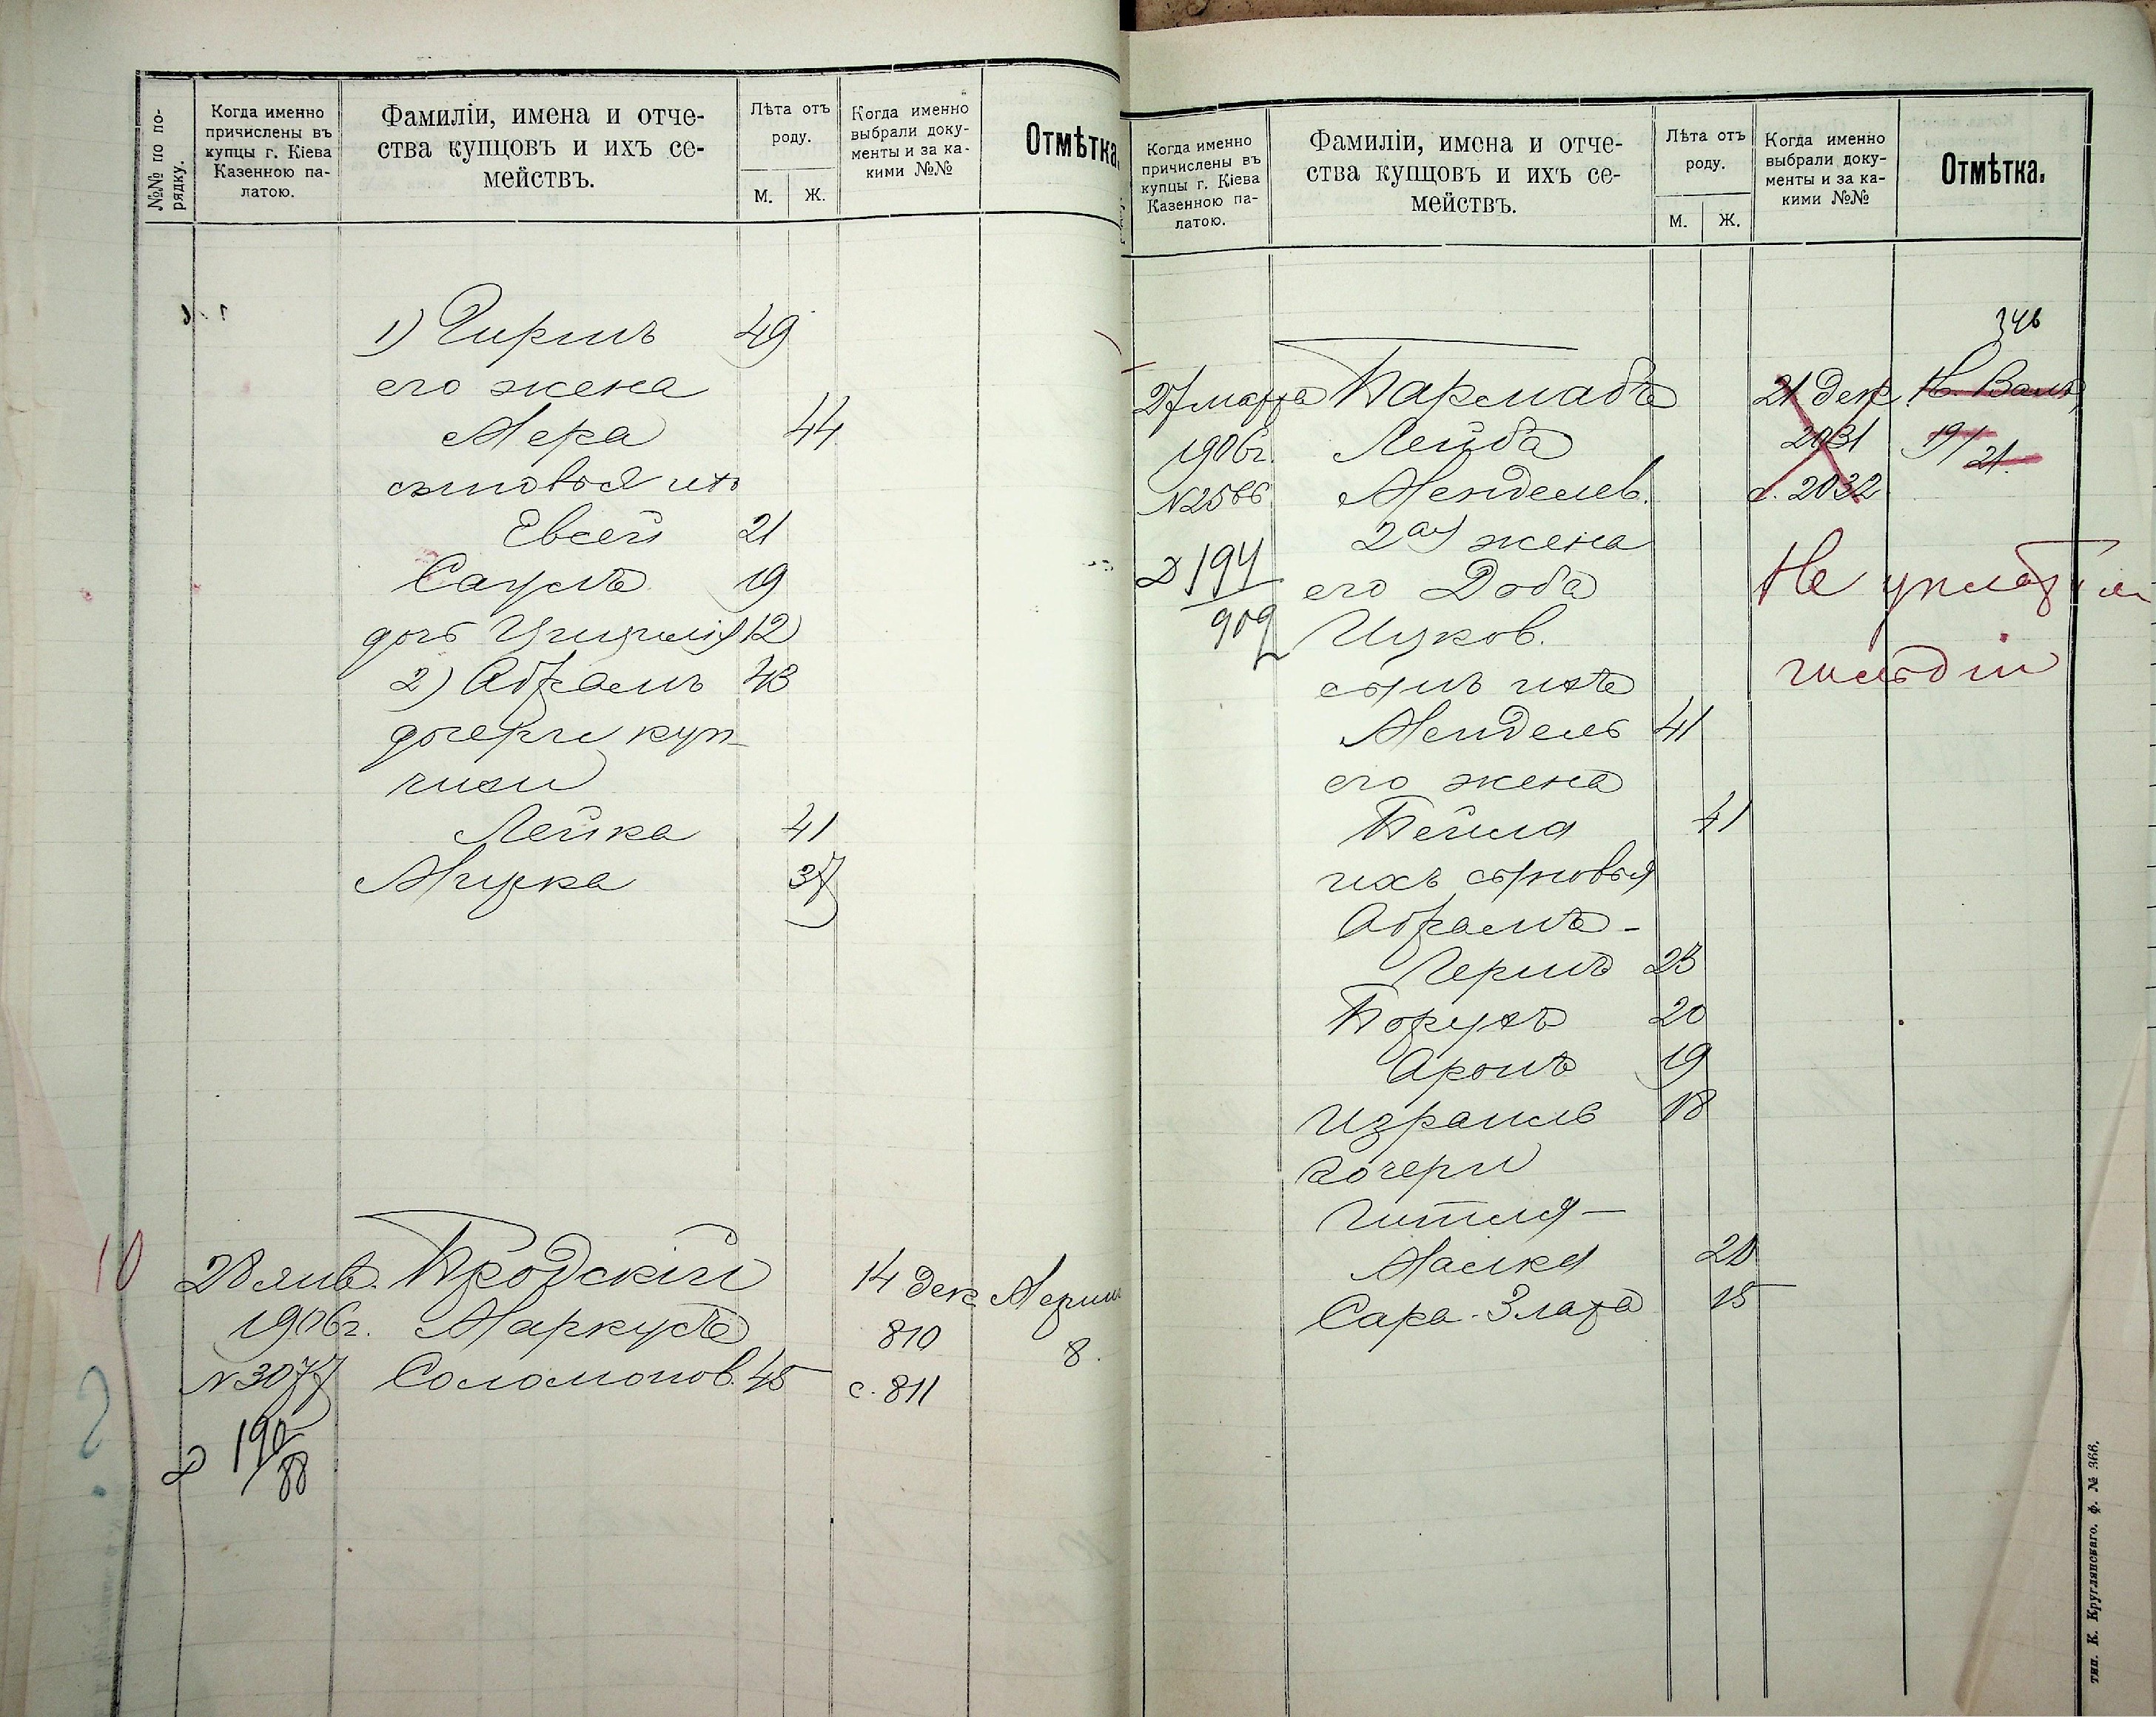 №№ по по-
рядку.
Когда именно
причислены въ
купцы г. Кіева
Казенною па-
латою.
Фамиліи, имена и отче-
ства купцовъ и ихъ се-
мействъ.
Лѣта отъ
роду.
М. Ж.
Когда именно
выбрали доку-
менты и за ка-
кими №№
Отмѣтка.
1) Гиршъ 49
его жена
Мера 44
сыновья ихъ
Евсей 21
Саулъ 19
дочь 12
2) Абрамъ 43
дочери куп-
чихи
Лейка 41
37
10
28 янв. Бродскій 14 дек.
1906г. Маркусъ 810 8.
N 3077 Соломонов. 45 с. 811
Когда именно
причислены въ
купцы г. Кіева
Казенною па-
латою.
Фамиліи, имена и отче-
ства купцовъ и ихъ се-
мействъ.
Лѣта отъ
роду.
М. Ж.
Когда именно
выбрали доку-
менты и за ка-
кими №№
Отмѣтка.
346
27 марта 21 дек.
1906г. Лейба 2031 19/21.
N 2566 Менделев. с. 2032
2ая жена
194/909 его Доба
Ицков.
Не уплатил
гильдіи
сынъ ихъ
Мендель 41
его жена
Бейла 41
ихъ сыновья
Абрамъ-
Гершъ 23
Борухъ 20
Аронъ 19
Израиль 18
дочери
Гитля-
Малка 20
Сара-Злата 15
тип. К. Круглянскаго. ф. № 366.